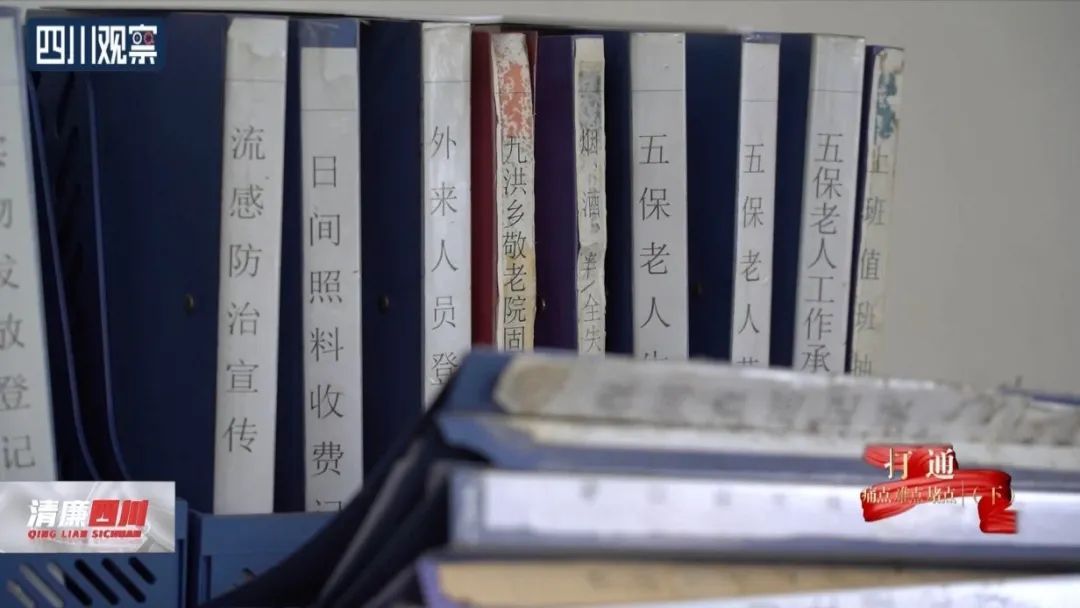 四川观察
放登记
流感防治宣传
日间照料收费记
外来人员登
元洪乡敬老院固
烟、酒
五保老人
五保老人
五保老人工作承
上班值班抽
清廉四川
QING LIAN SICHUAN
打通
痛点 难点 堵点 （下）